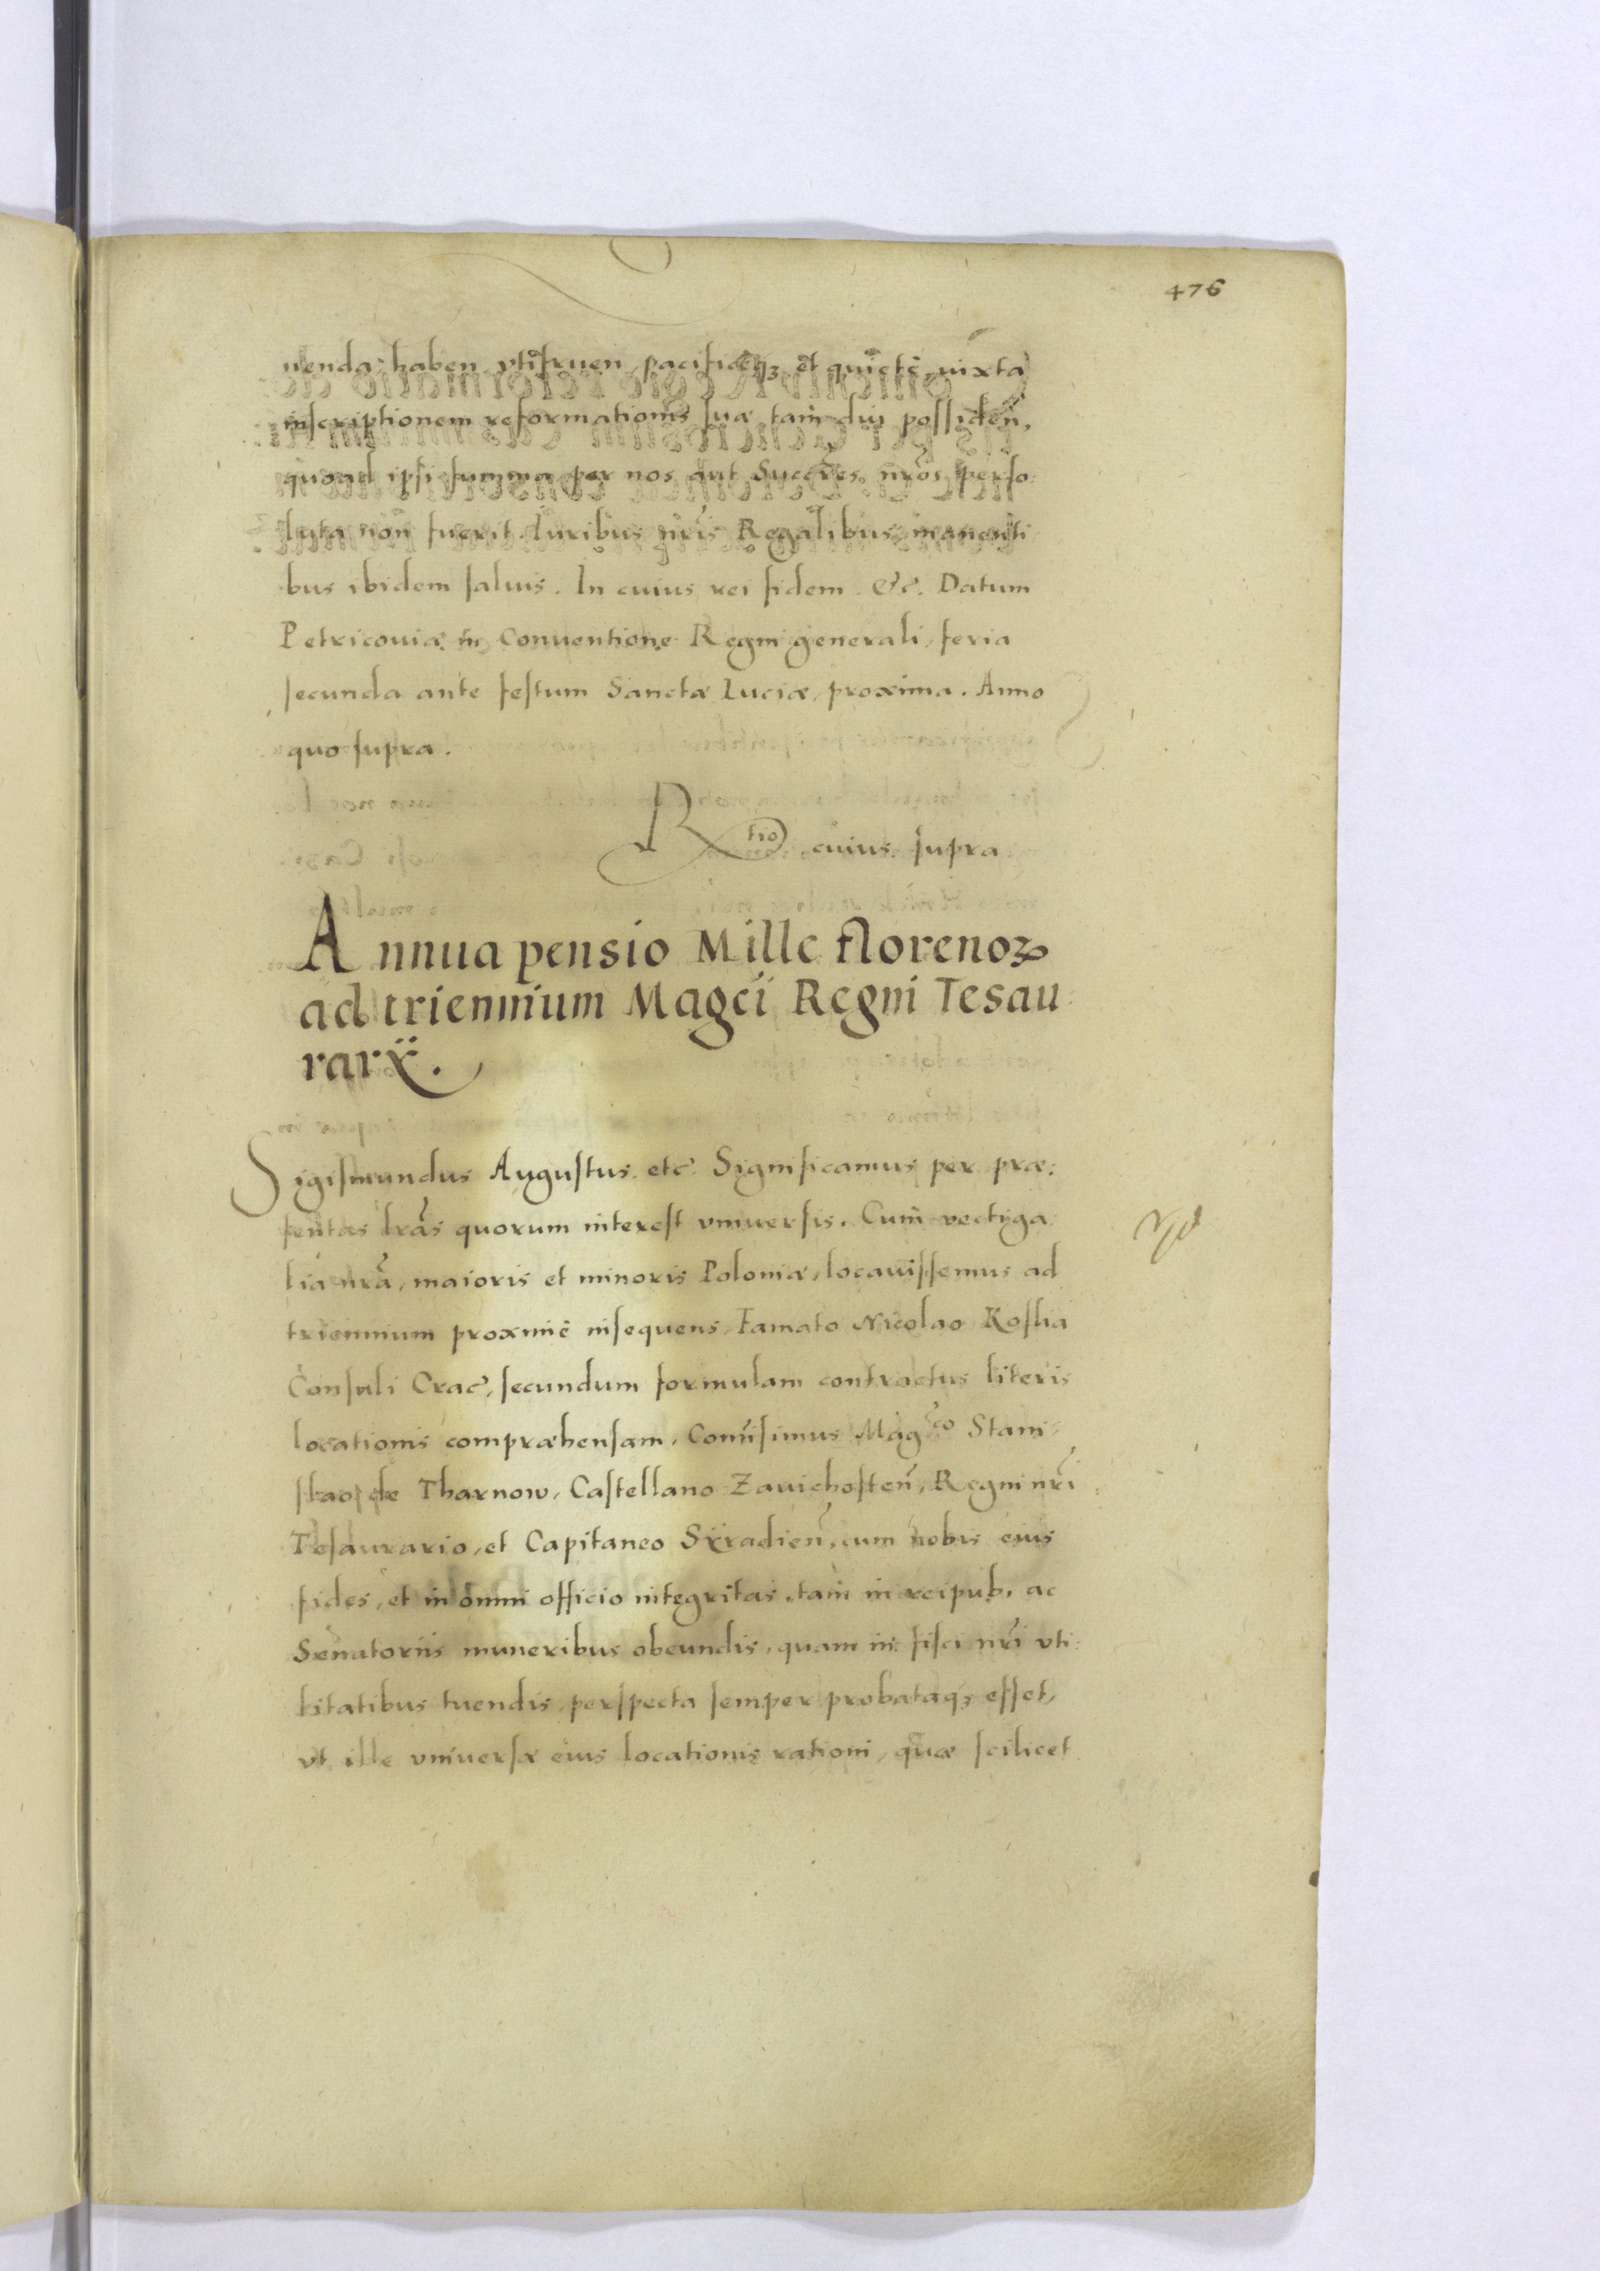 476
nenda, haben, vtifruen, pacificeqꝫ et quiete, iuxta
inscriptionem reformationis suæ tam diu possiden̄,
quoad ipsi summa per nos aut Succres. nros perso:
luta non fuerit. Iuribus nris Regalibus manenti
bus ibidem saluis. In cuius rei fidem &c. Datum
Petricouiæ in Conuentione Regni generali, feria
secunda ante festum Sanctæ Luciæ, proxima. Anno
quo supra.
Rtio cuius supra
Annua pensio Mille florenoꝝ
ad triennium Magci Regni Tesau
rarÿ.
Sigismundus Augustus. etc Significamus per præ:
sentas lras quorum interest vniuersis. Cum vectiga
lia nra, maioris et minoris Poloniæ, locauissemus ad
triennium proximè insequens, Famato Nicolao Koslia
Consuli Crac, secundum formulam contractus literis
locationis compræhensam, Comisimus Magco Stani
slao de Tharnow, Castellano Zauichosten̄, Regni nri
Tesaurario, et Capitaneo Sÿradien̄, cum nobis eius
fides, et in omni officio integritas, tam in reipub. ac
Senatoriis muneribus obeundis, quam in fisci nri vti:
litatibus tuendis, perspecta semper probataqꝫ esset,
vt ille vniuersæ eius locationis rationi, quæ scilicet